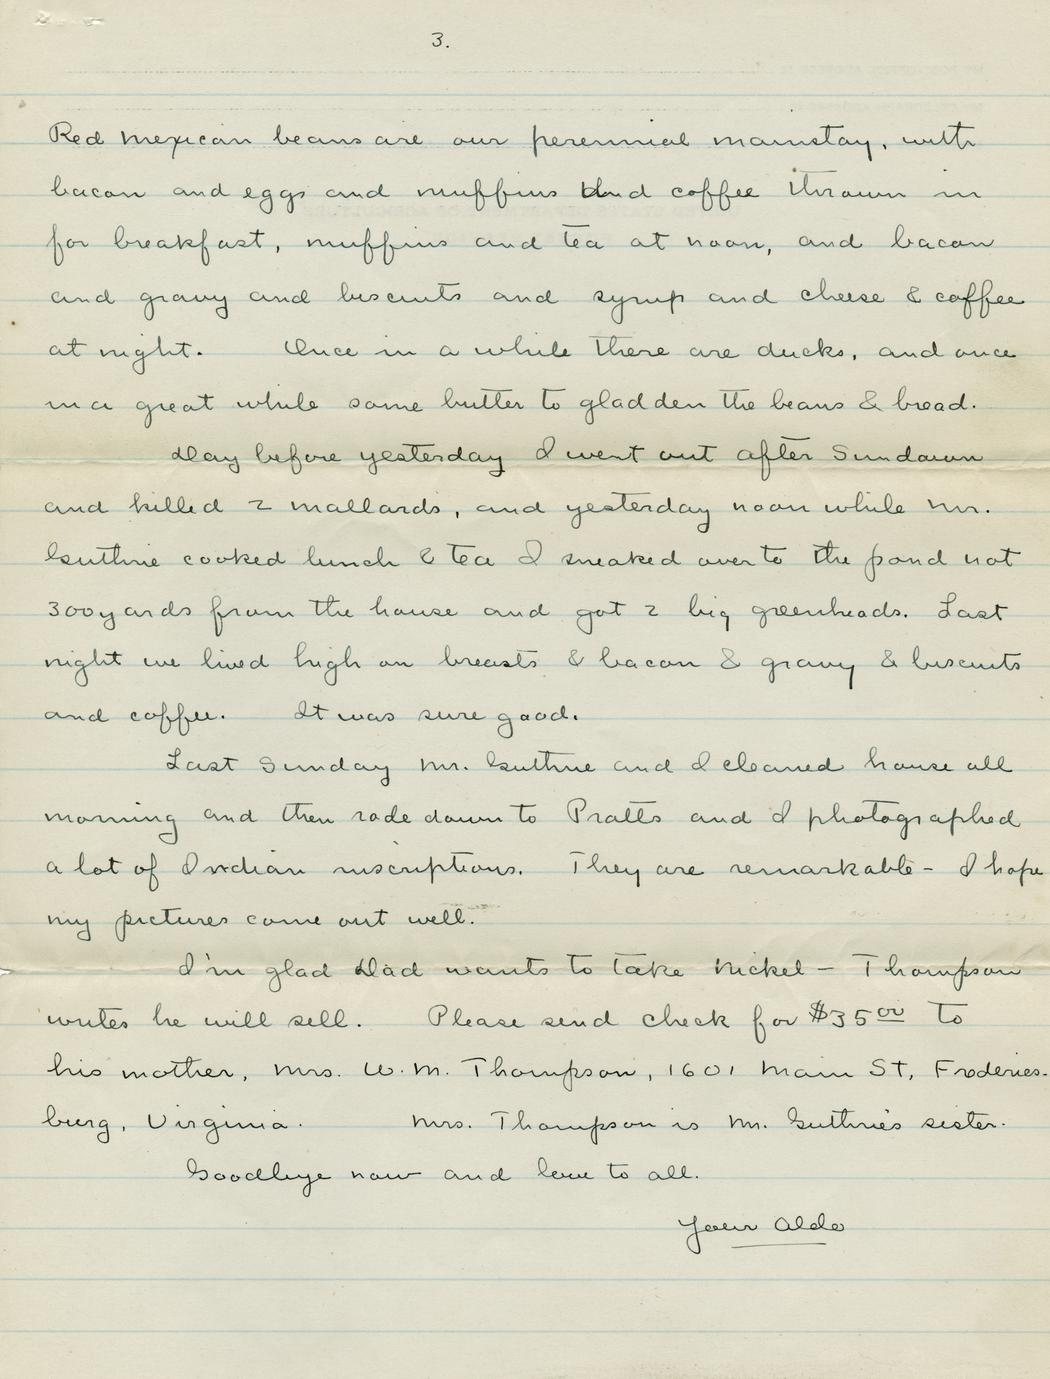 3.
Red Mexican beans are our perennial mainstay, with
bacon and eggs and muffins and coffee thrown in
for breakfast, muffins and tea at noon, and bacon
and gravy and biscuits and syrup and cheese & coffee
at night. Once in a while there are ducks, and once
in a great while some butter to gladden the beans & bread.
Day before yesterday I went out after sundown
and killed 2 mallards, and yesterday noon while Mr.
Guthrie cooked lunch & tea I sneaked over to the pond not
300 yards from the house and got 2 big greenheads. Last
night we lived high on breasts & bacon & gravy & biscuits
and coffee. It was sure good.
Last Sunday Mr. Guthrie and I cleaned house all
morning and then rode down to Pratts and I photographed
a lot of Indian inscriptions. They are remarkable - I hope
my pictures come out well.
I'm glad Dad wants to take Nickel - Thompson
writes he will sell. Please send check for $35 00 to
his mother, Mrs. W. M. Thompson, 1601 Main St, Frederics-
burg, Virginia. Mrs. Thompson is Mr. Guthrie's sister.
Goodbye now and love to all.
Your Aldo